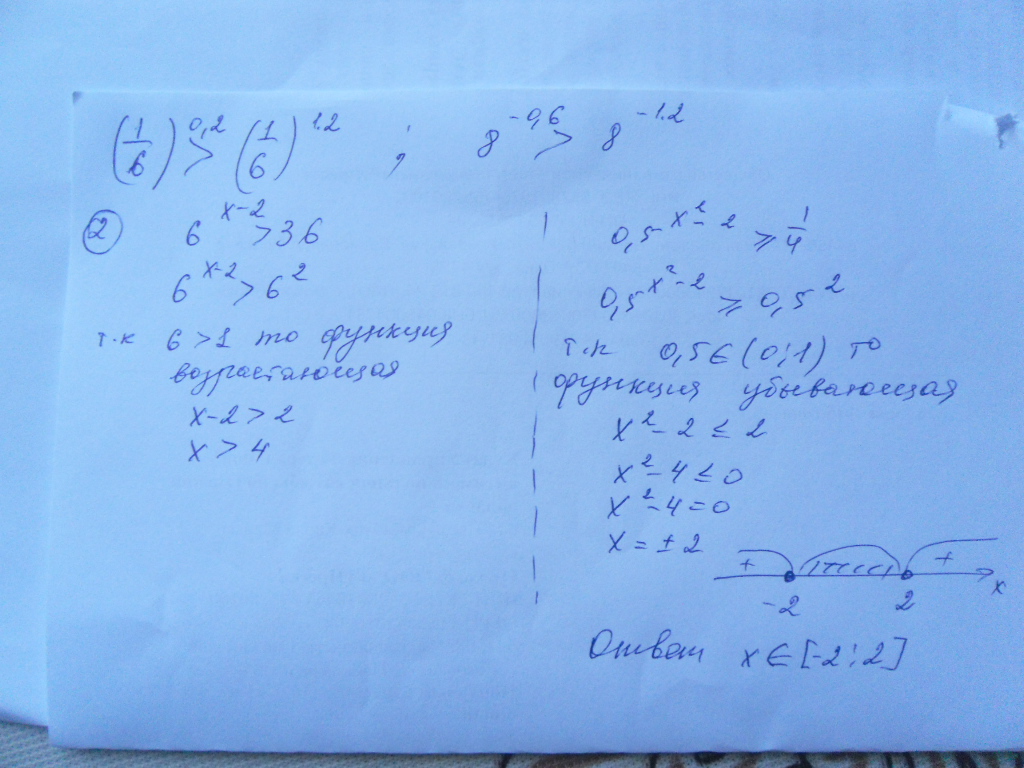 (1/6)^0,2 > (1/6)^1.2 ; 8^-0,6 > 8^-1.2
② 6^x-2 > 36
6^x-2 > 6^2
т.к 6 > 1 то функция
возрастающая
x-2 > 2
x > 4
0,5^x²-2 ≥ 1/4
0,5^x²-2 ≥ 0,5^2
т.к 0,5 ∈ (0;1) то
функция убывающая
x²-2 ≤ 2
x²-4 ≤ 0
x²-4=0
x = ±2
+ +
-2 2 x
Ответ x ∈ [-2;2]